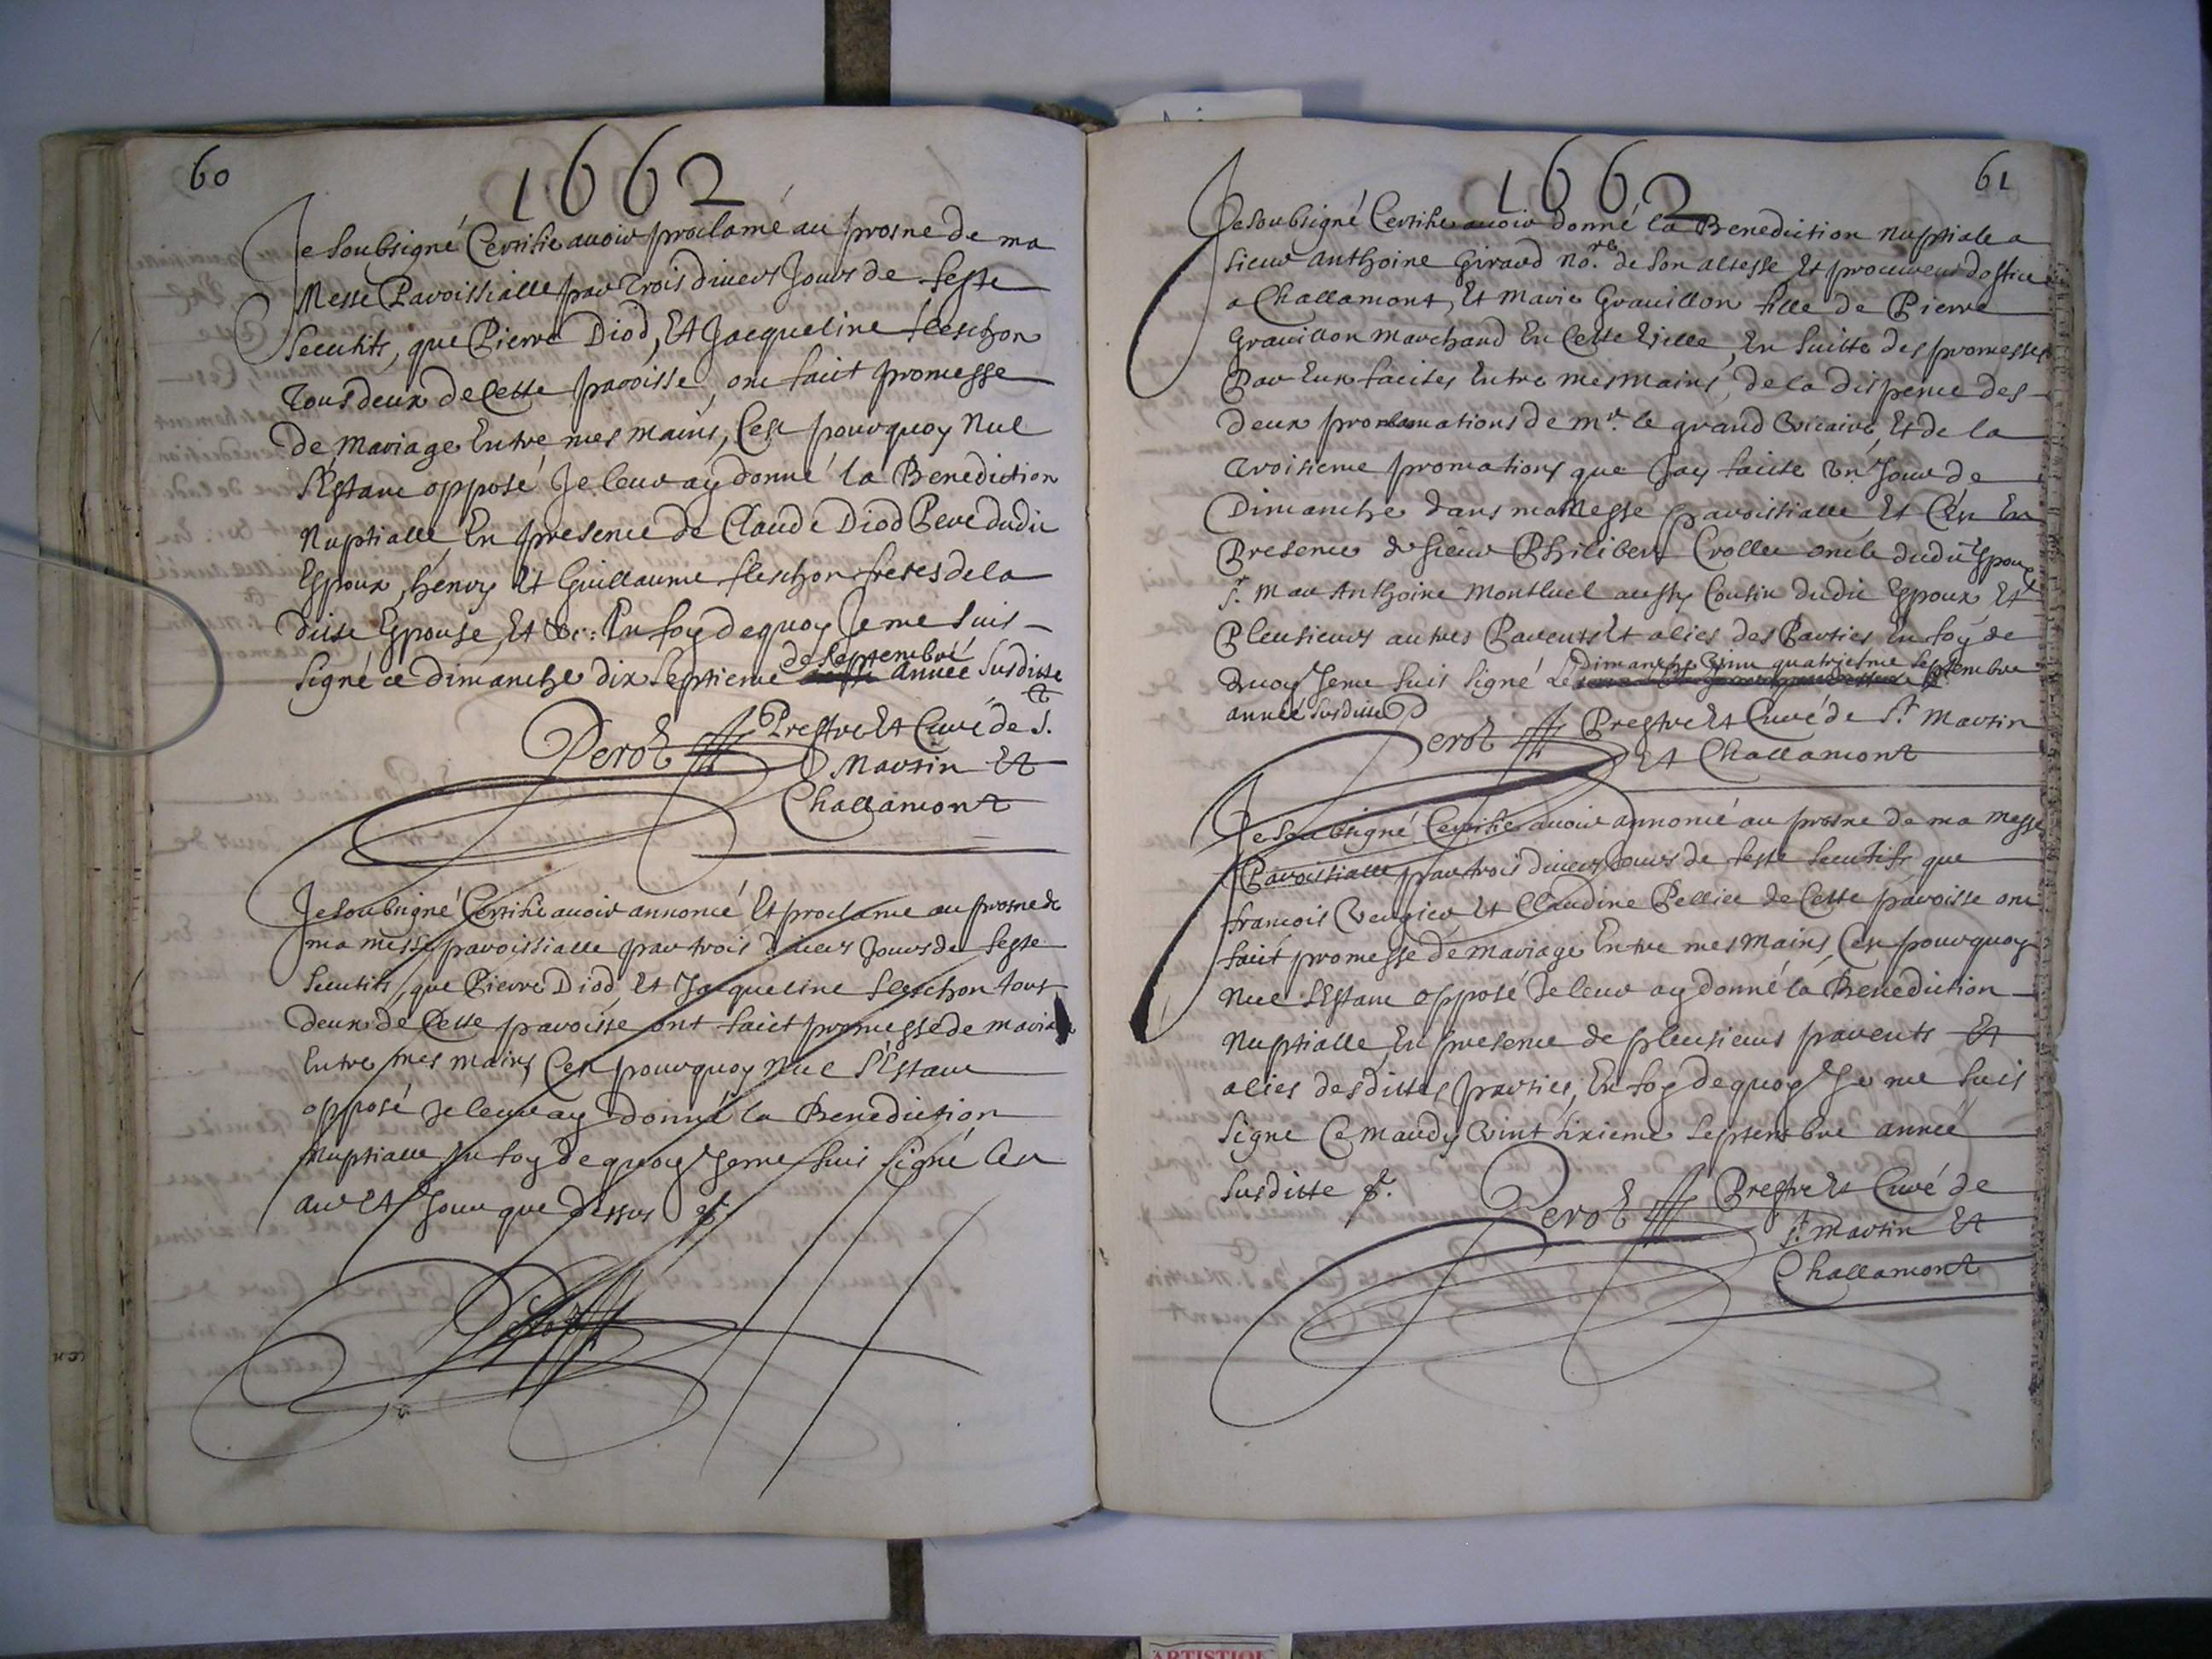 60
1662
Je soubsigné Certifie avoir proclamé au prosne de ma
Messe Paroissialle par trois divers Jours de feste
secutifs, que Pierre Diod, Et Jacqueline fleschon
tous deux de Cette paroisse, ont faict promesse
de Mariage Entre mes mains, Cest pourquoy Nul
s'Estant opposé Je leur ay donné la Benediction
Nuptialle, En presence de Claude Diod Pere dudit
Espoux, henry Et Guillaume fleschon freres de la
ditte Espouse, Et &c: En foy dequoy Je me suis
de septembre
signé ce dimanche dix septieme année susditte
Perot Prestre Et Curé de St.
Martin Et
Challamont
Je soubsigné Certifie avoir annoncé Et proclamé au prosne de
ma messe paroissialle par trois divers Jours de feste
secutifs, que Pierre Diod, Et Jacqueline fleschon tous
deux de Cette paroisse ont faict promesse de maria
Entre mes mains, Cest pourquoy Nul s'Estant
opposé Je leur ay donné la Benediction
Nuptialle En foy de quoy Je me suis signé les
an Et Jour que dessus
Perot
1662
61
Je soubsigné Certifie avoir donné la Benediction Nuptiale a
sieur Anthoine Giraud No.re de son altesse Et procureur d'office
a Challamont, Et Marie Gravillon fille de Pierre
Gravillon marchand En Cette Ville, En suitte des promesses
Par Eux faictes Entre mes mains, de la dispence des
deux proclamations de mr. le grand Vicaire, Et de la
troisieme promations que Jay faicte Un Jour de
Dimanche dans ma Messe paroissialle, Et C'en En
Presence de sieur Philibert Crollet oncle dudit Espoux
Sr. Marc Anthoine Montluel aussy Cousin dudit Espoux Et
Pleusieurs autres Parents Et aliés des Parties En foy de
dimanche Vint quatriesme septembre
Quoy Je me suis signé Le
année susditte
Perot Prestre Et Curé de St Martin
Et Challamont
Je soubsigné Certifie avoir annoncé au prosne de ma messe
Paroissialle par trois divers Jours de feste secutifs que
francois Vengier Et Claudine Pellier de Cette paroisse ont
faict promesse de mariage Entre mes mains, Cest pourquoy
Nul s'Estant opposé Je leur ay donné la Benediction
Nuptialle, En presence de pleusieurs parents Et
aliés desdittes parties, En foy de quoy Je me suis
signé Ce mardy Vint sixieme septembre année
susditte
Perot Prestre Et Curé de
St. Martin Et
Challamont